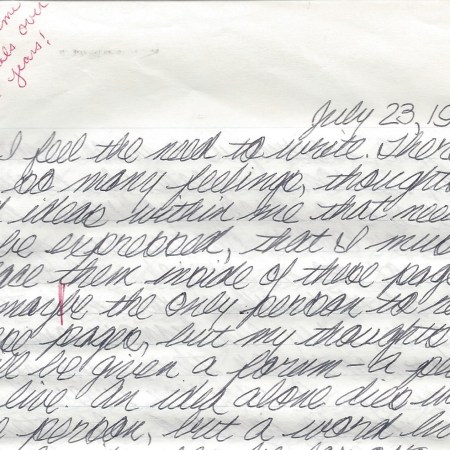 me
over
years!
July 23, 19
I feel the need to write. There
so many feelings, thoughts
ideas within me that need
be expressed, that I mus
them inside of these pag
maybe the only person to re
pages, but my thoughts
be given a forum - a pla
live. An idea alone dies w
person, but a word liv